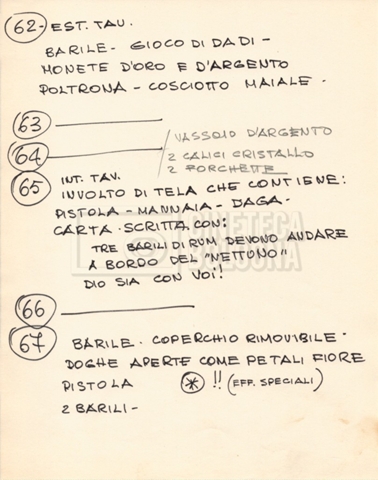 62- EST. TAV.
BARILE - GIOCO DI DADI -
MONETE D'ORO E D'ARGENTO
POLTRONA - COSCIOTTO MAIALE -
63
VASSOIO D'ARGENTO
64
2 CALICI CRISTALLO
2 FORCHETTE
65 INT. TAV.
INVOLTO DI TELA CHE CONTIENE:
PISTOLA - MANNAIA - DAGA -
CARTA SCRITTA CON:
TRE BARILI DI RUM DEVONO ANDARE
A BORDO DEL "NETTUNO"
DIO SIA CON VOI!
CINETECA
BOLOGNA
66
67 BARILE - COPERCHIO RIMOVIBILE -
DOGHE APERTE COME PETALI FIORE
PISTOLA * !! (EFF. SPECIALI)
2 BARILI -